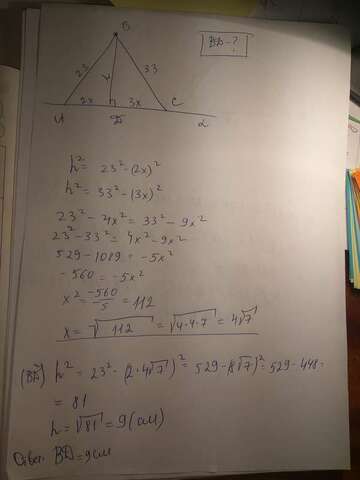 B
BD - ?
23 y 33
2x 3x
A D C α
h² = 23² - (2x)²
h² = 33² - (3x)²
23² - 4x² = 33² - 9x²
23² - 33² = 4x² - 9x²
529 - 1089 = -5x²
-560 = -5x²
x² = -560/5 = 112
x = √112 = √4·4·7 = 4√7
(BD) h² = 23² - (2·4√7)² = 529 - (8√7)² = 529 - 448 =
= 81
h = √81 = 9 (см)
Ответ: BD = 9см